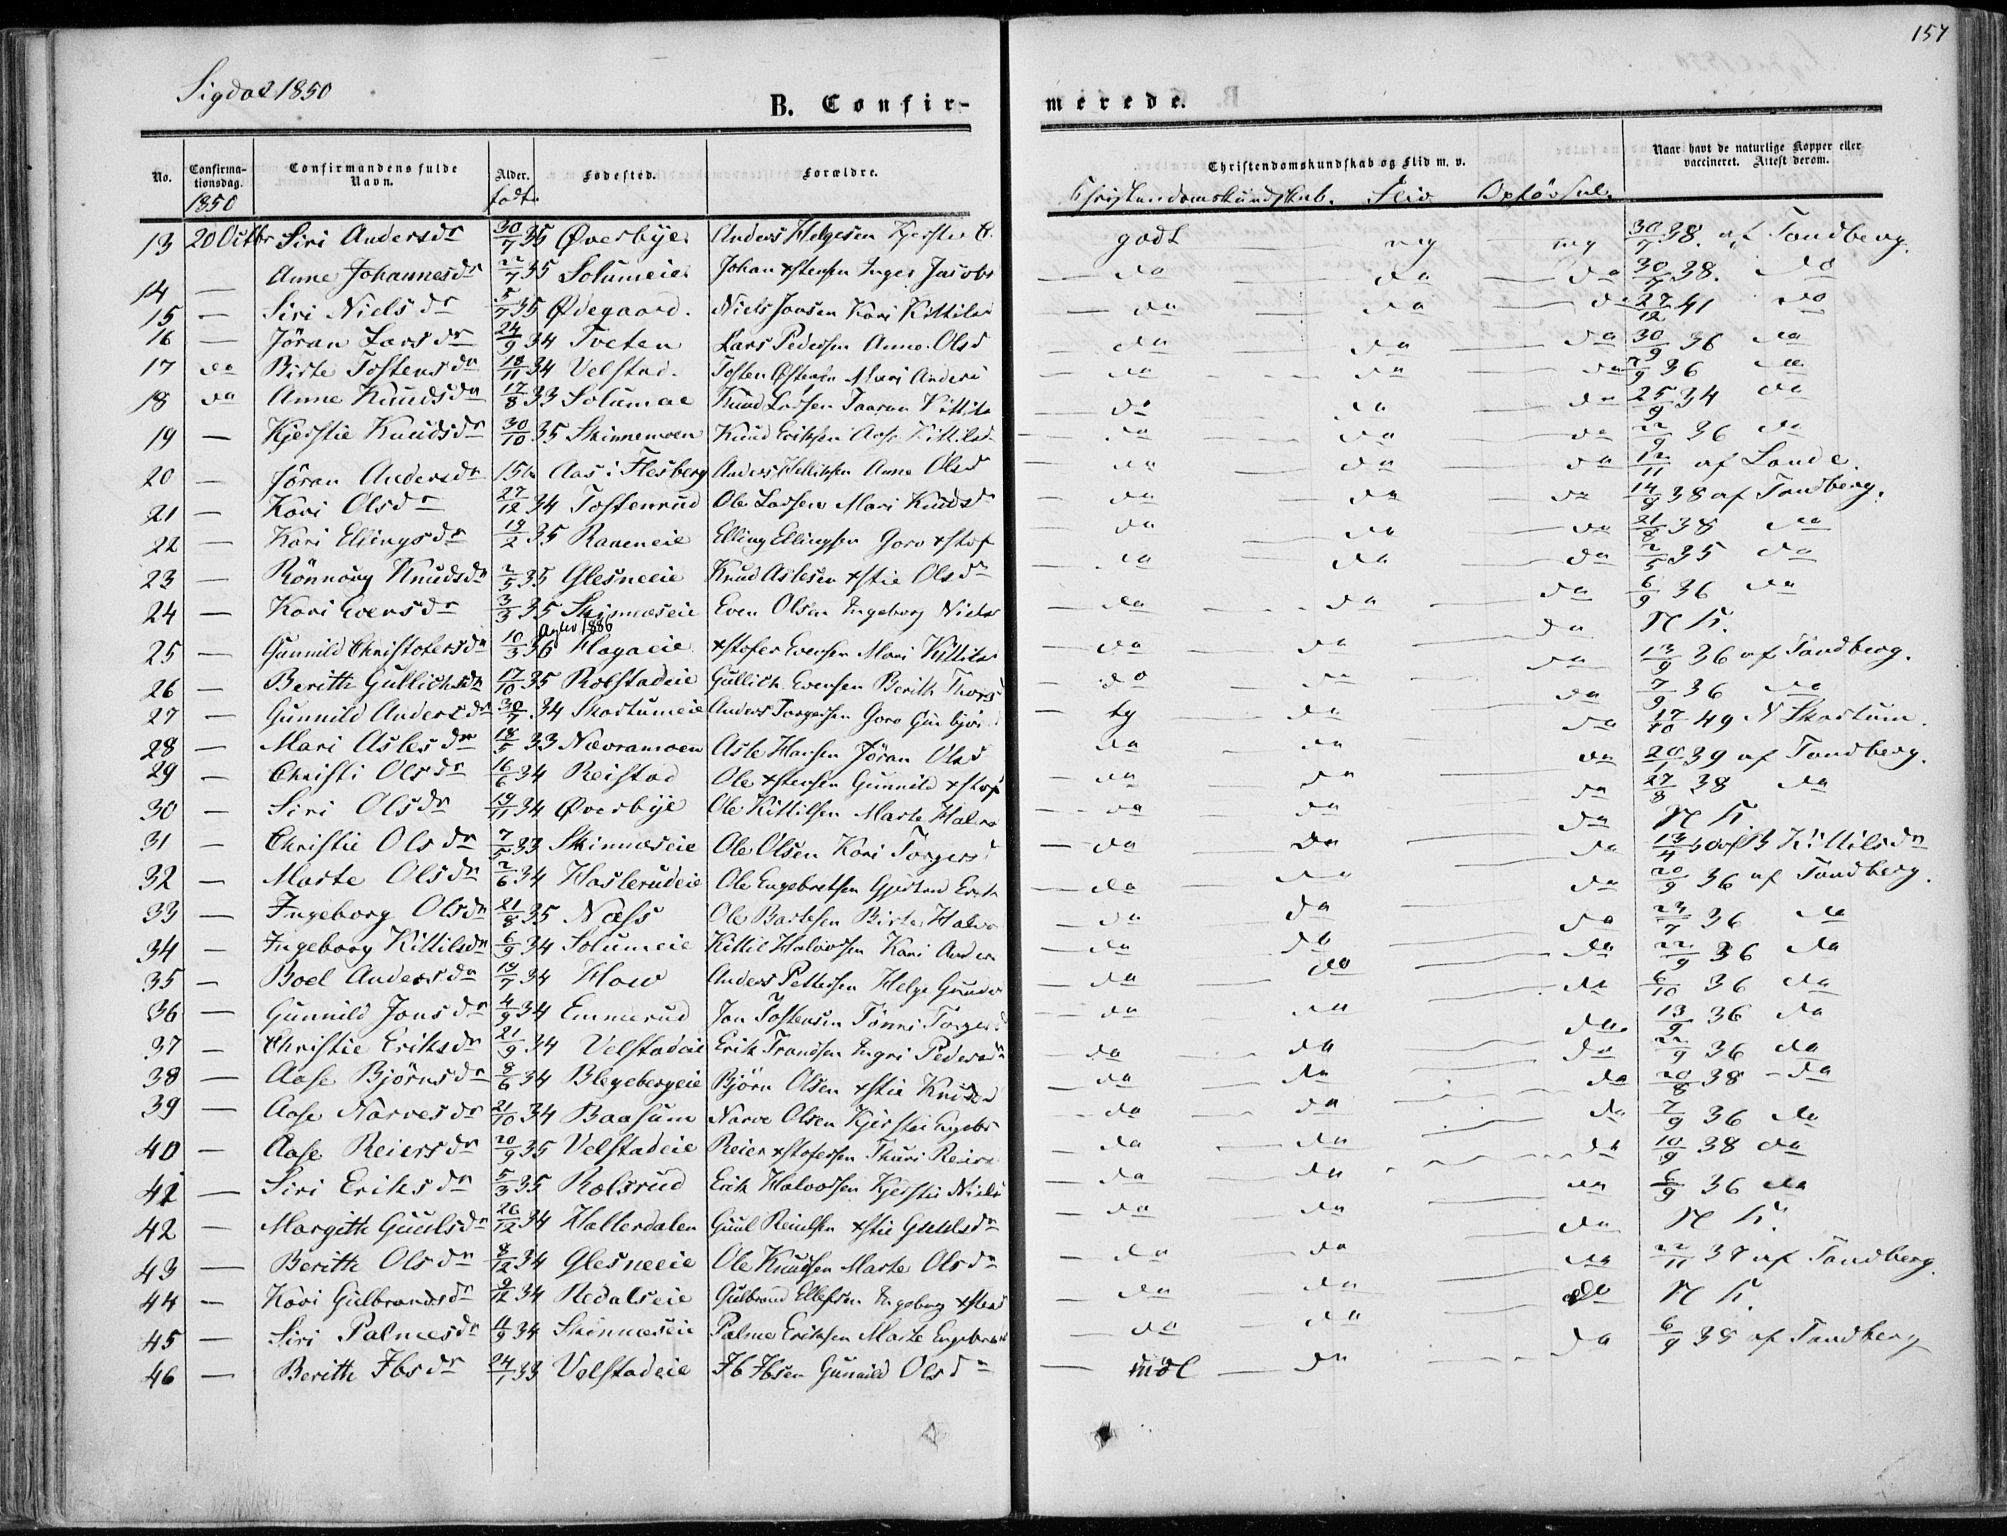 157
Sigdal 1850
B. Confir-
merede.
No. Confirma-tionsdag. Confirmandens fulde Navn. Alder. Fødested. Forældre. Christendomskundskab og Flid m. v. Naar havt de naturlige Kopper eller vaccineret. Attest derom.
1850 født Christendomskundskab. Flid Opførsel.
13 20 Octbr Siri Andersdr 30/7 35 Øverbye Anders Helgesen Kjerstie godt mg mg 30/7 38. af Tandberg.
14 — Anne Johannesdr 22/7 35 Solumeie Johan Xstensen Inger Jacobs — do da da 30/7 38. do
15 — Siri Nielsdr 5/7 35 Ødegaard. Niels Jonsen Kari Kittilsd — da da 27/12 41 do
16 — Jöran Larsdr 24/9 34 Tveten Lars Pedersen Anne Olsd — da da da 30/9 36 da
17 da Birte Tostensdr 18/11 34 Velstad. Tosten Østensen Mari Anders — da da da 7/9 36 da
18 da Anne Knudsdr 17/8 33 Solumoe Knud Larsen Taaran Kittils — da da da 25/9 34 da
19 — Kjerstie Knudsdr 30/10 35 Skinnemoen Knud Eriksen Aase Kittilsd — da da da 22/9 36 da
20 — Jöran Andersdr 15 Aas i Flesberg Anders Helliksen Anne Olsd — da da da 12/11 af Lande.
21 — Kari Olsdr 27/12 34 Tostenrud Ole Larsen Mari Knudsd — da da da 14/8 38 af Tandberg.
22 — Kari Ellingsdr 19/2 35 Raaneeie Elling Ellingsen Goro Xstof — da da da 21/8 38 da
23 — Rönnoug Knudsdr 2/5 35 Glesneeie Knud Aslesen Xstie Olsdr — da da da 2/5 35 da
24 — Kari Evensdr 3/3 35 Skinneseie Even Olsen Ingeborg Niels — da da da 6/9 36 da
25 — Gunnild Christofersdr 10/3 36 Hagaeie Xstofer Evensen Mari Kittils — da da da N K.
26 — Berith Gullichsdr 17/10 35 Rolstadeie Gullich Evensen Berith Thors — do da da 13/9 36 af Tandberg.
27 — Gunnild Andersdr 30/7 34 Skartumeie Anders Torgersen Goro Gunbjør — tg da da 7/9 36 da
28 — Mari Aslesdr 18/5 33 Nævramoen Asle Hansen Jöran Olsd da da da 17/10 49 N Skartum.
29 — Christi Olsdr 16/6 34 Reistad Ole Xstensen Gunnild Xstof — da da da 39 af Tandberg.
30 — Siri Olsdr 19/11 34 Øverbye Ole Kittilsen Marte Halvo — da da da 27/8 38 da
31 — Christie Olsdr 7/5 33 Skinneseie Ole Olsen Kari Torgersd — da da da N K.
32 — Marte Olsdr 2/6 34 Haslerudeie Ole Engebretsen Gjertrud Erik — da da da 13/4 Kittilsdr
33 — Ingeborg Olsdr 21/8 35 Næss Ole Bartesen Birte Halvo — da da da 20/9 36 af Tandberg.
34 — Ingeborg Kittilsdr 6/9 34 Solumeie Kittil Halvorsen Kari Anders — da da da 23/7 36 da
35 — Boel Andersdr 19/7 34 How Anders Pettersen Helge Gunders — da do da 22/9 36 da
36 — Gunnild Jonsdr 4/9 34 Emmerud Jon Tostensen Tönni Torgers — da da da 6/10 36 da
37 — Christie Eriksdr 21/9 34 Velstadeie Erik Trondsen Ingri Pedersdr — da da da 13/9 36 da
38 — Aase Björnsdr 8/6 34 Blegebergeie Björn Olsen Xstie Knudsd — da da da 22/9 36 da
39 — Aase Narvesdr 21/10 34 Baasum Narve Olsen Kjerstie Engebr — da da da 20/8 38 da
40 — Aase Reiersdr 20/9 35 Velstadeie Reier Xstofersen Thuri Reiers — da da da 7/9 36 da
41 — Siri Eriksdr 5/3 35 Rolsrud Erik Halvorsen Kjerstie Niels — da da da 10/9 38 da
42 — Margith Guulsdr 26/12 34 Hallerdalen Guul Xstie Guulsdr — da da da 6/9 36 da
43 — Berith Olsdr 8/12 34 Glesneeie Ole Knudsen Marte Olsdr — da da da N K.
44 — Kari Gulbrandsdr 9/12 34 Medalseie Gulbrand Ellefsen Ingeborg Xstens — da da do 22/11 37 af Tandberg.
45 — Siri Palmesdr 4/9 34 Skinneseie Palme Eriksen Marte Engebre — da da da N K.
46 — Berith Ibsdr 24/1 33 Velstadeie Ib Ibsen Gunnild Olsdr — du da 6/9 38 af Tandberg